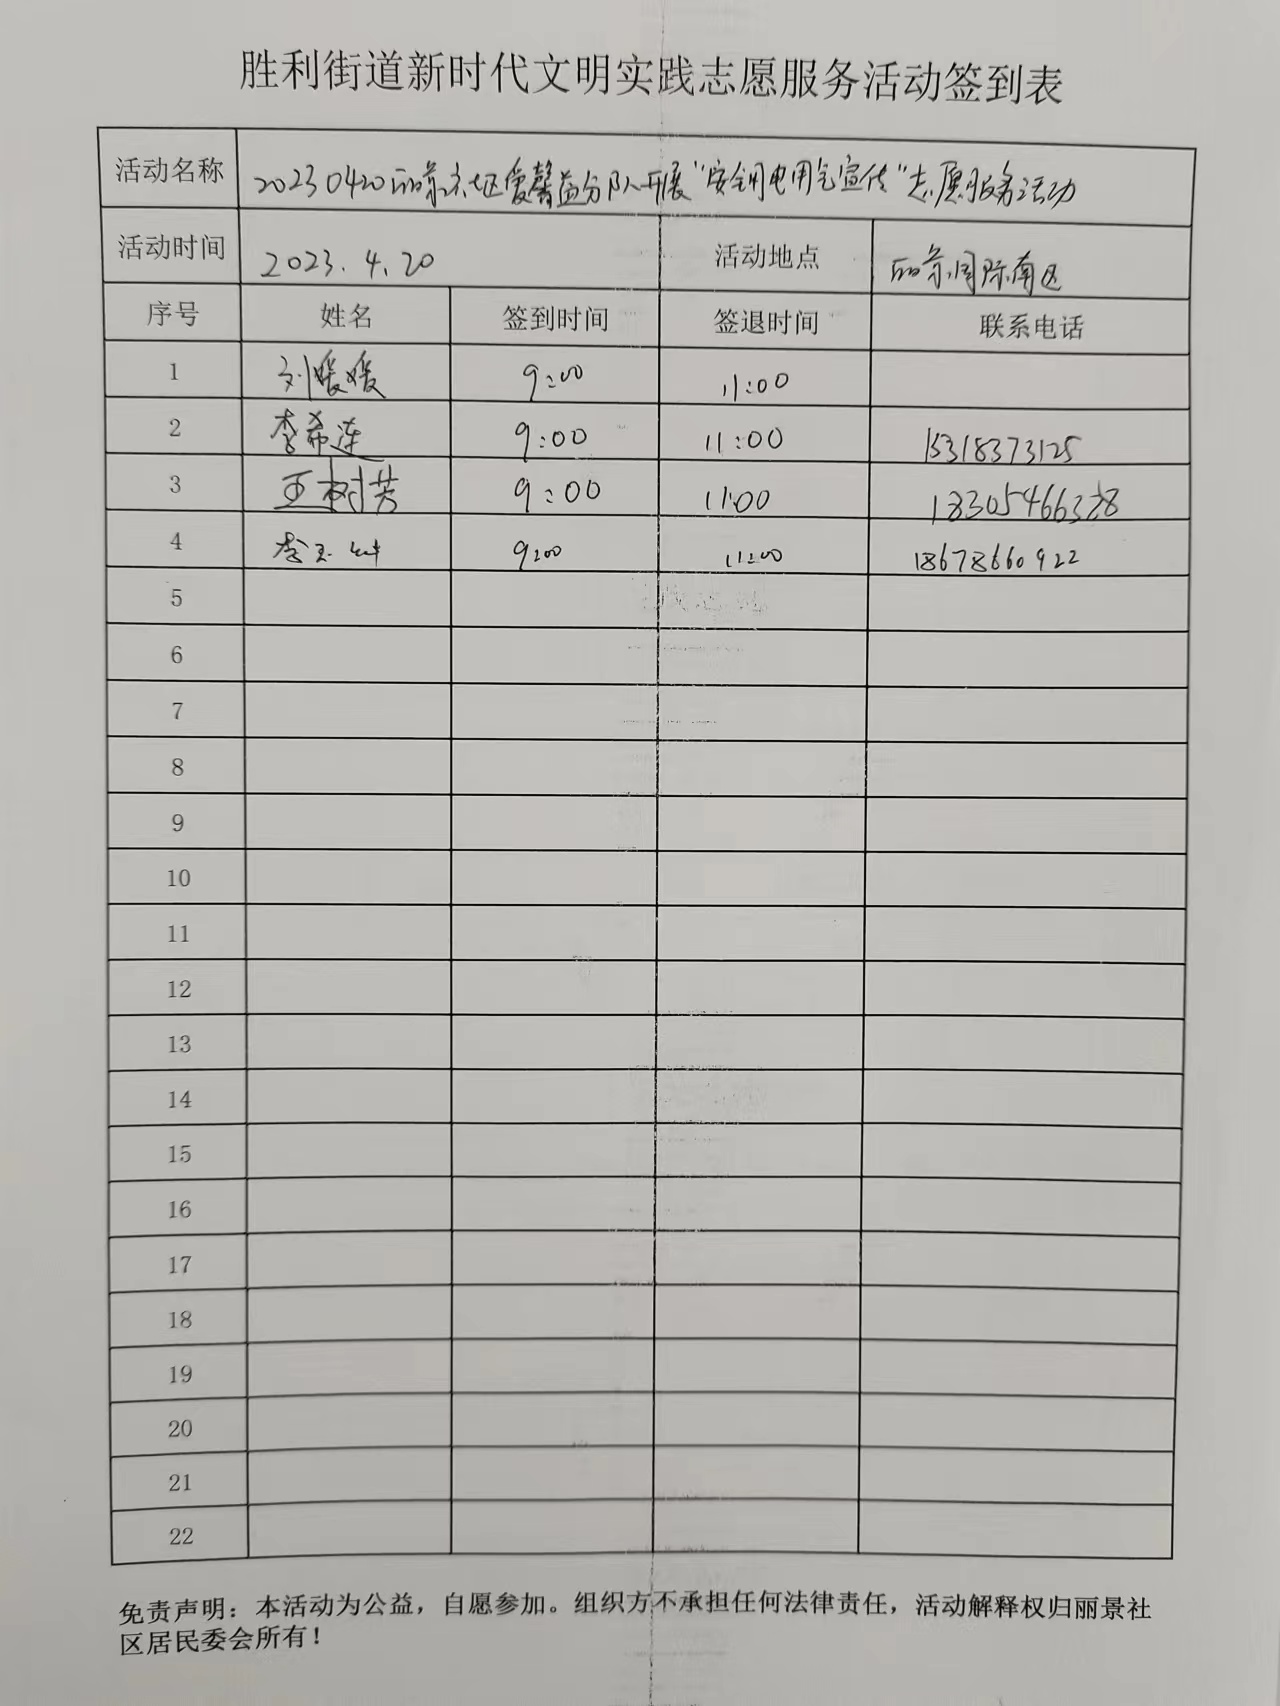 胜利街道新时代文明实践志愿服务活动签到表
活动名称 20230420丽景社区爱馨益分队开展"安全用电用气宣传"志愿服务活动
活动时间 2023.4.20 活动地点 丽景国际南区
序号 姓名 签到时间 签退时间 联系电话
1 刘媛媛 9:00 11:00
2 李希连 9:00 11:00 15318373125
3 王树芳 9:00 11:00
4 李玉 9:00 11:00 18678660922
5
6
7
8
9
10
11
12
13
14
15
16
17
18
19
20
21
22
免责声明：本活动为公益，自愿参加。组织方不承担任何法律责任，活动解释权归丽景社
区居民委会所有！